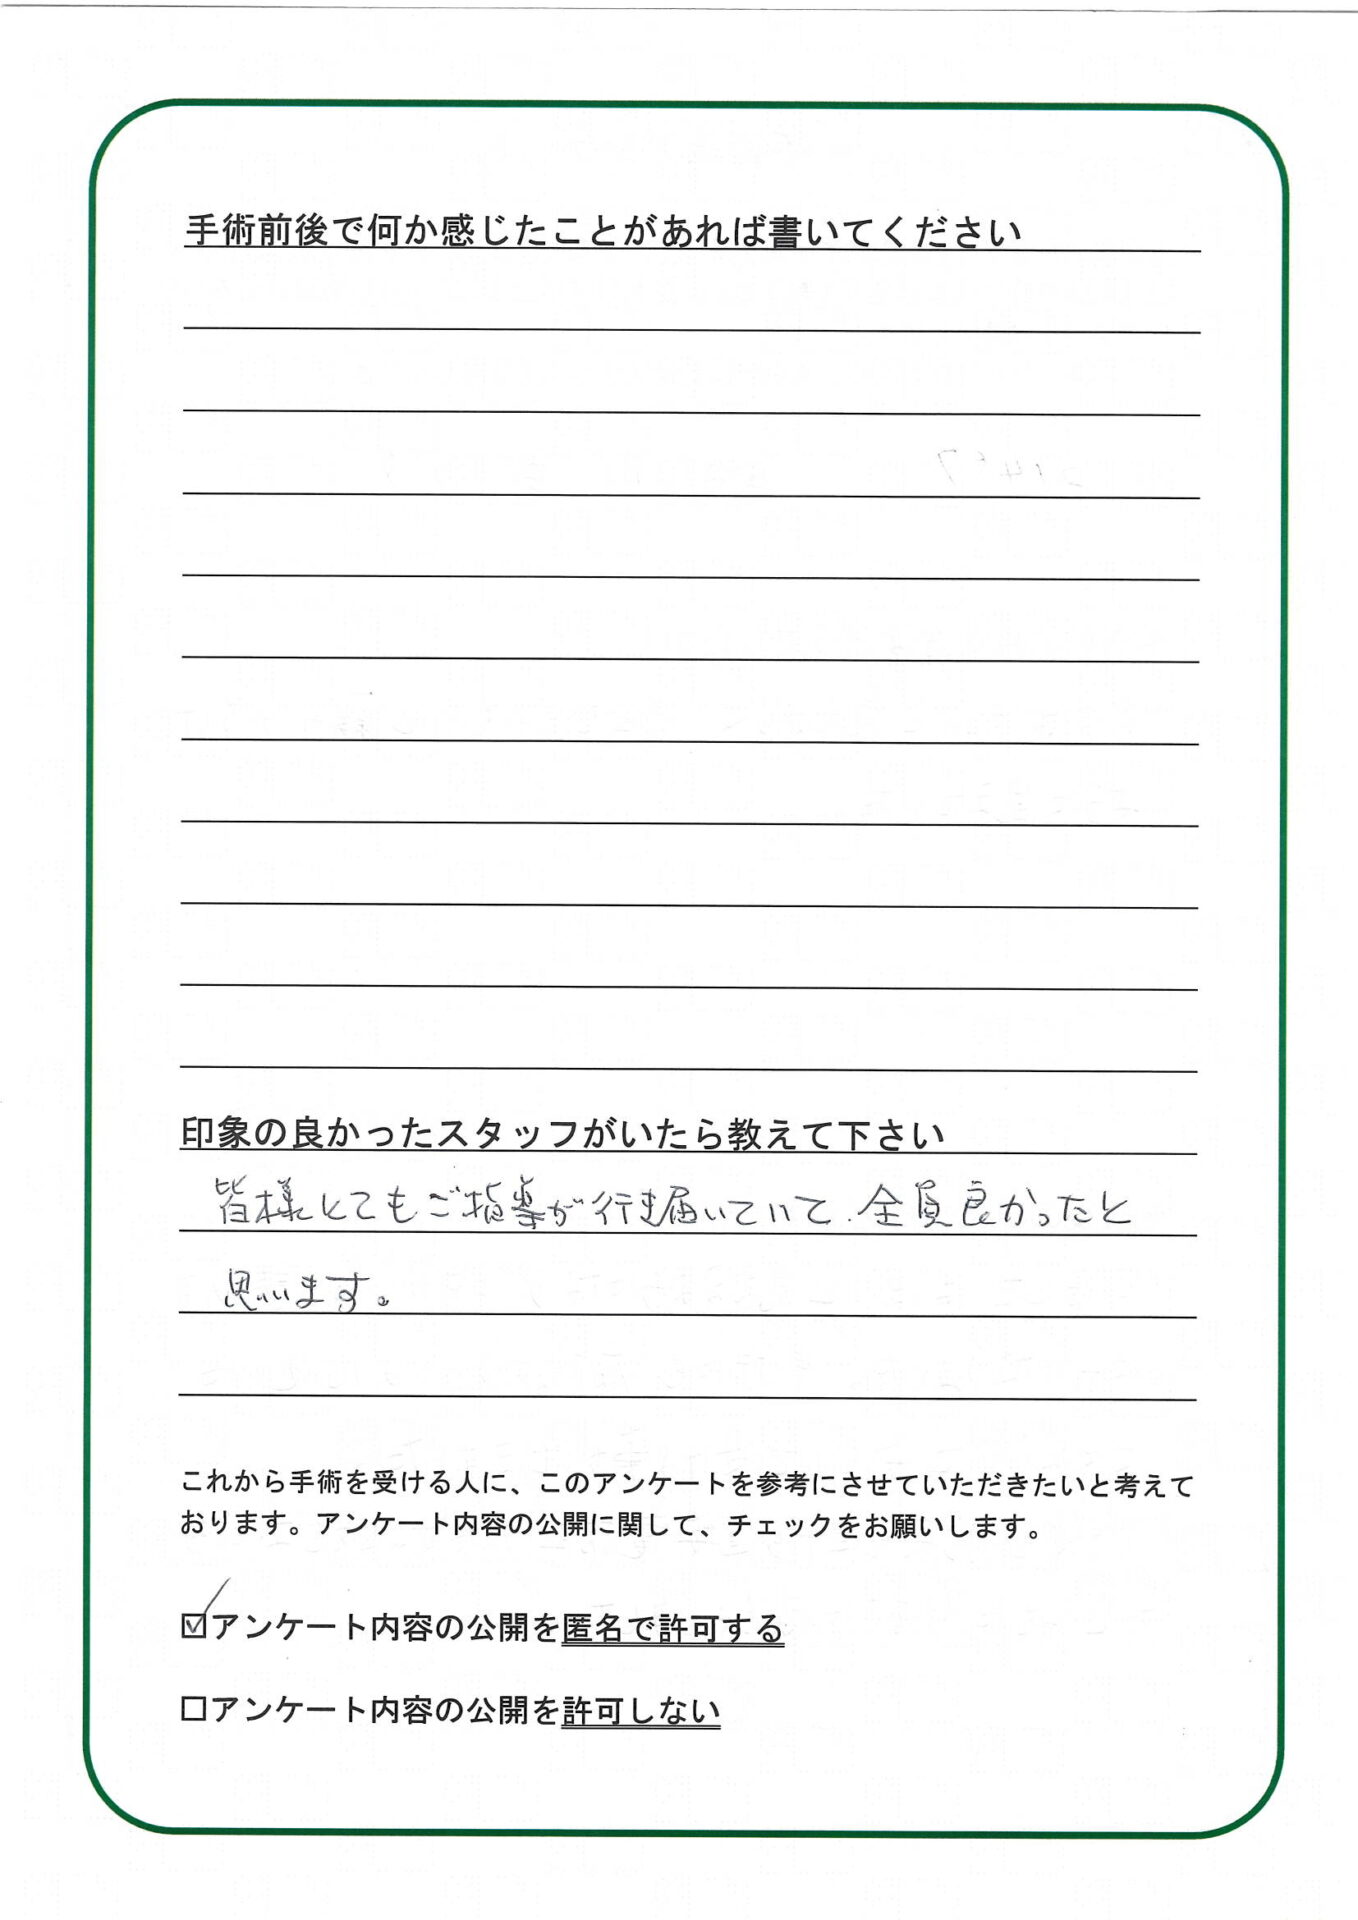 手術前後で何か感じたことがあれば書いてください
印象の良かったスタッフがいたら教えて下さい
皆様とてもご指導が行き届いていて、全員良かったと
思います。
これから手術を受ける人に、このアンケートを参考にさせていただきたいと考えて
おります。アンケート内容の公開に関して、チェックをお願いします。
☑アンケート内容の公開を匿名で許可する
□アンケート内容の公開を許可しない